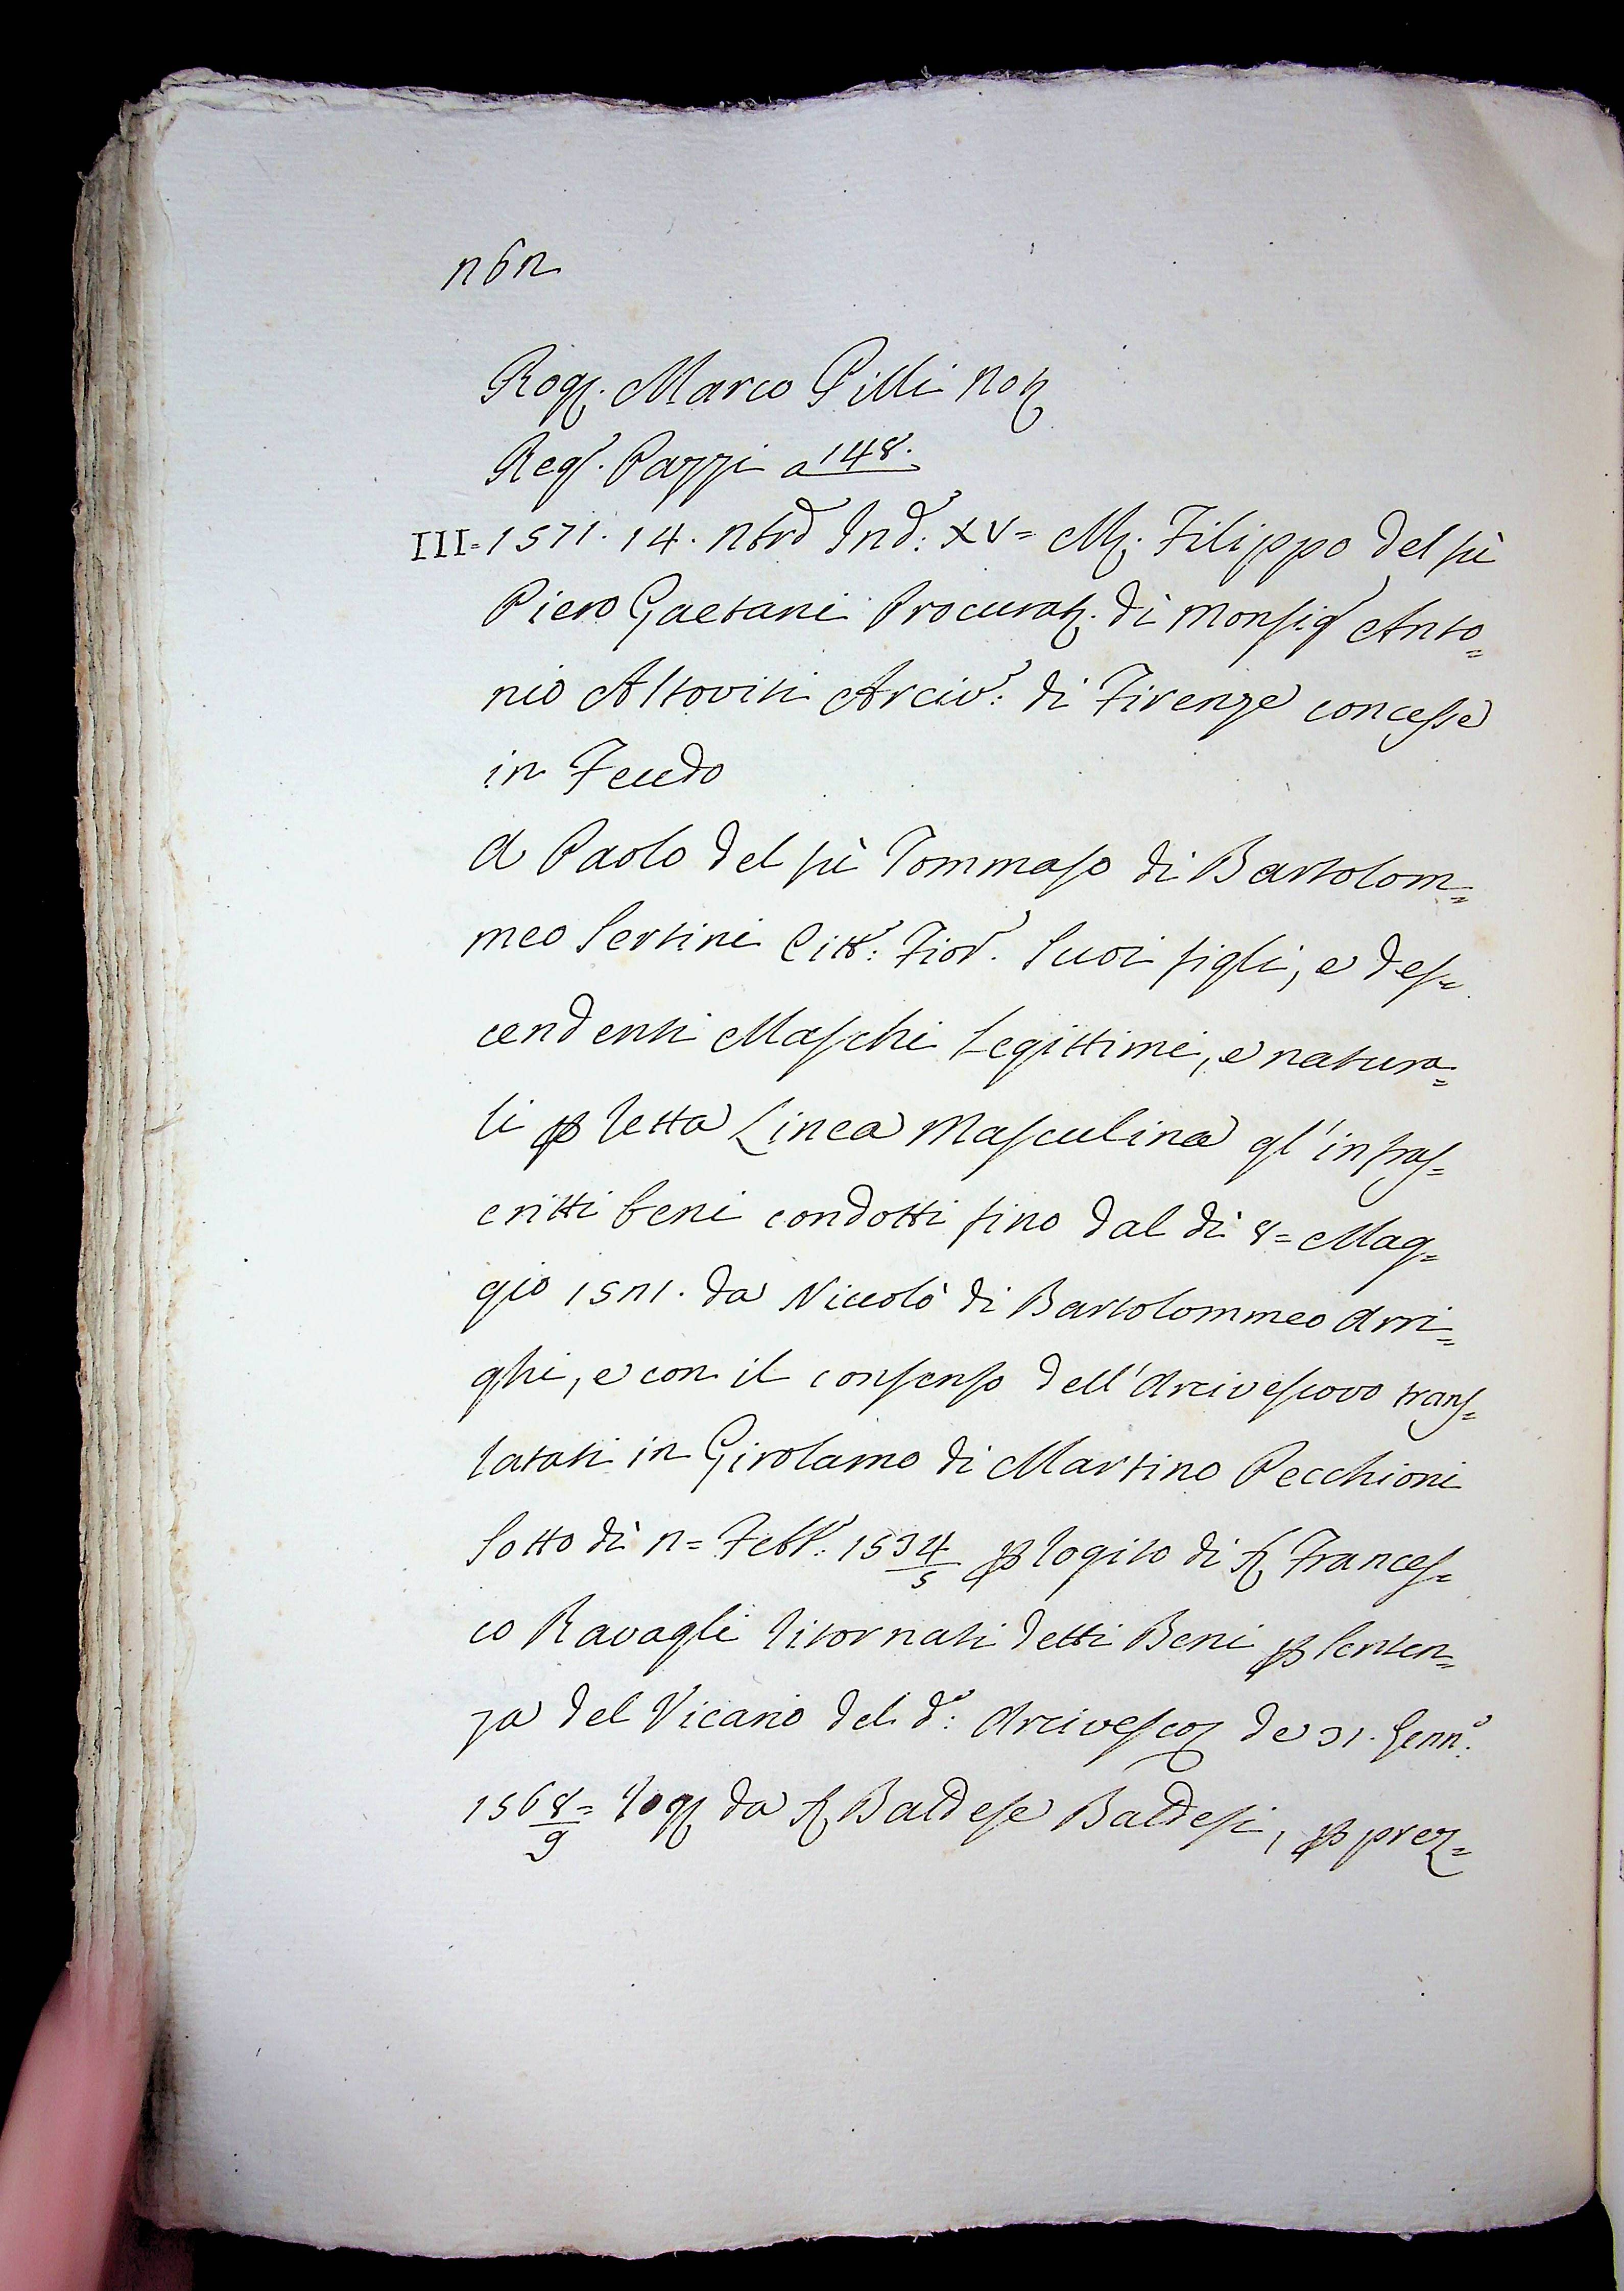 262
Rog. Marco Gilli Not
Reg. Pazzi a 148.
III = 1571. 14. Nbre Ind: XV = M. Filippo del fù
Piero Gaetani Procurat. di Monsig Anto=
nio Altoviti Arciv: di Firenze concesse
in Feudo
A Paolo del fù Tommaso di Bartolom=
meo Sertini Citt: Fior. Suoi figli, e des=
cendenti Maschi Legittimi, e natura=
li p retta Linea Masculina gl'infras=
critti beni condotti fino dal dì 8 = Mag=
gio 1521. da Niccolò di Bartolommeo Arri=
ghi, e con il consenso dell'Arcivescovo trans=
latati in Girolamo di Martino Pecchioni
Sotto dì 2 = Febb: 1534/5 p rogito di S Frances=
co Ravagli ritornati detti Beni p senten=
za del Vicario del d: Arcivesco de 31. Genn:
1568/9 = rog da S Baldese Baldesi, p prez=